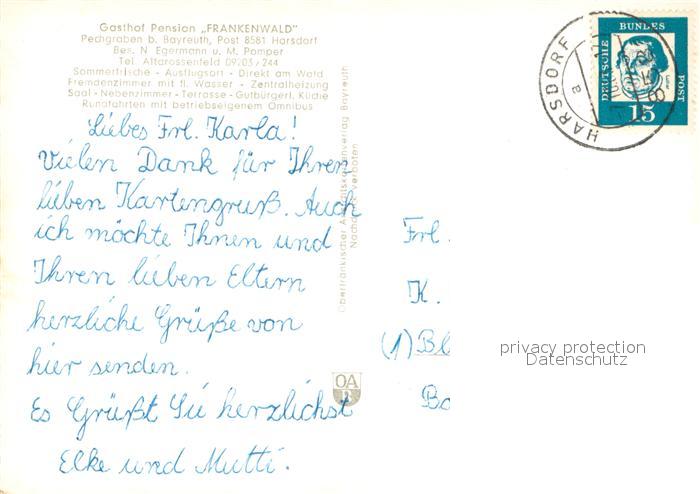 Gasthof Pension „FRANKENWALD"
Pechgraben b. Bayreuth, Post 8581 Harsdorf
Bes. N. Egermann u. M. Pomper
Tel. Altarossenfeld 09203/244
Sommerfrische - Ausflugsort - Direkt am Wald
Fremdenzimmer mit fl. Wasser - Zentralheizung
Saal - Nebenzimmer - Terrasse - Gutbürgerl. Küche
Rundfahrten mit betriebseigenem Omnibus
Liebes Frl. Karla!
Vielen Dank für Ihren
lieben Kartengruß. Auch
ich möchte Ihnen und
Ihren lieben Eltern
herzliche Grüße von
hier senden.
Es Grüßt Sie herzlichst
Elke und Mutti.
Oberfränkischer Ansichtskartenverlag Bayreuth
Nachdruck verboten
OA
B
HARSDORF
a
DEUTSCHE
BUNDES
POST
Luther
15
Frl.
K.
(1) Bl
privacy protection
Datenschutz